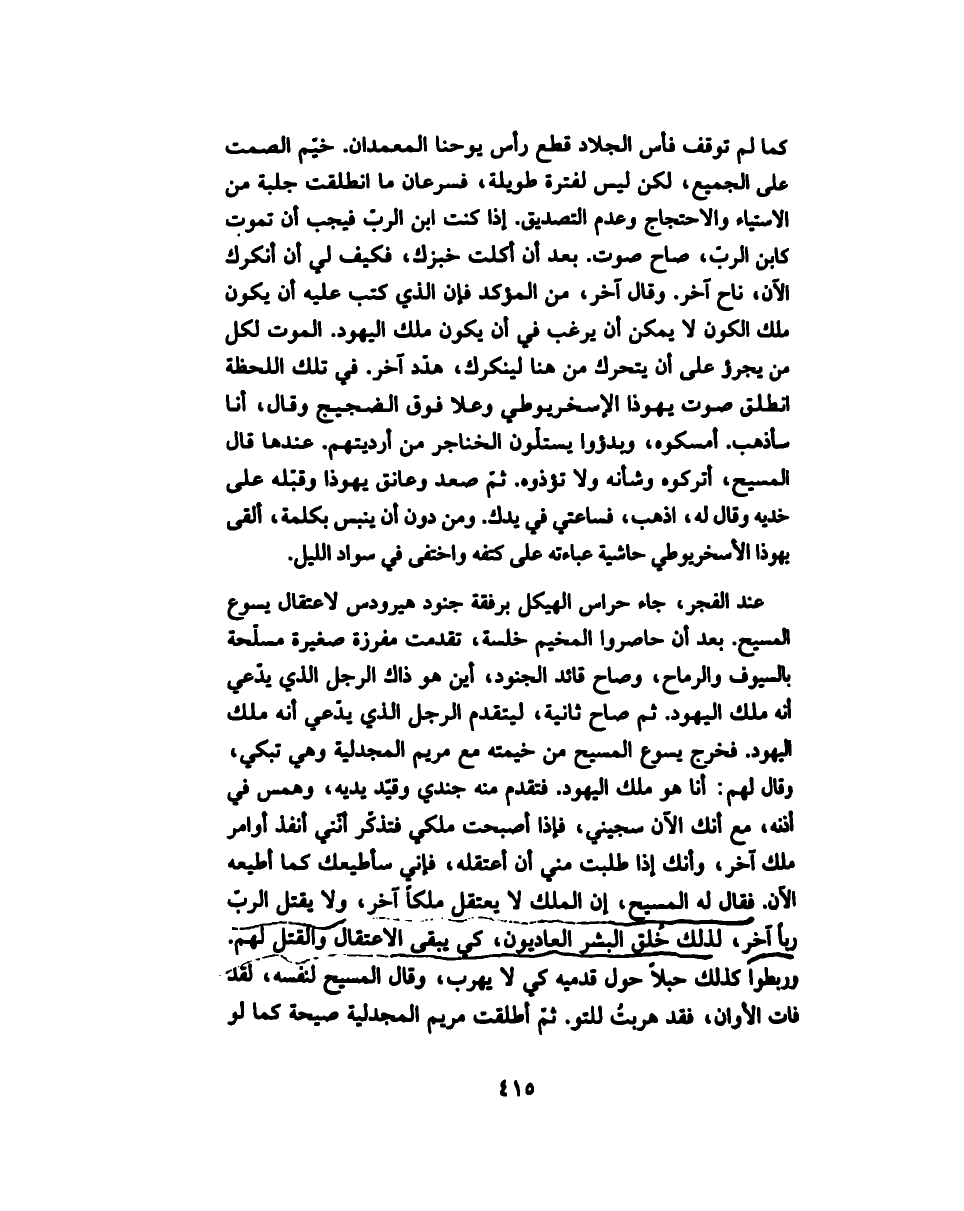 كما لم توقف فأس الجلاد قطع رأس يوحنا المعمدان. خيّم الصمت
على الجميع، لكن ليس لفترة طويلة، فسرعان ما انطلقت جلبة من
الاستياء والاحتجاج وعدم التصديق. إذا كنت ابن الربّ فيجب أن تموت
كابن الربّ، صاح صوت. بعد أن أكلت خبزك، فكيف لي أن أنكرك
الآن، ناح آخر. وقال آخر، من المؤكد فإن الذي كتب عليه أن يكون
ملك الكون لا يمكن أن يرغب في أن يكون ملك اليهود. الموت لكل
من يجرؤ على أن يتحرك من هنا لينكرك، هدّد آخر. في تلك اللحظة
انطلق صوت يهوذا الإسخريوطي وعلا فوق الضجيج وقال، أنا
سأذهب. أمسكوه، وبدؤوا يستلّون الخناجر من أرديتهم. عندها قال
المسيح، أتركوه وشأنه ولا تؤذوه. ثمّ صعد وعانق يهوذا وقبّله على
خديه وقال له، اذهب، فساعتي في يدك. ومن دون أن ينبس بكلمة، ألقى
يهوذا الأسخريوطي حاشية عباءته على كتفه واختفى في سواد الليل.
عند الفجر، جاء حراس الهيكل برفقة جنود هيرودس لاعتقال يسوع
المسيح. بعد أن حاصروا المخيم خلسة، تقدمت مفرزة صغيرة مسلّحة
بالسيوف والرماح، وصاح قائد الجنود، أين هو ذاك الرجل الذي يدّعي
أنه ملك اليهود. ثم صاح ثانية، ليتقدم الرجل الذي يدّعي أنه ملك
اليهود. فخرج يسوع المسيح من خيمته مع مريم المجدلية وهي تبكي،
وقال لهم: أنا هو ملك اليهود. فتقدم منه جندي وقيّد يديه، وهمس في
أذنه، مع أنك الآن سجيني، فإذا أصبحت ملكي فتذكّر أنّني أنفذ أوامر
ملك آخر، وأنك إذا طلبت مني أن أعتقله، فإني سأطيعك كما أطيعه
الآن. فقال له المسيح، إن الملك لا يعتقل ملكاً آخر، ولا يقتل الربّ
رباً آخر، لذلك خُلق البشر العاديون، كي يبقى الاعتقال والقتل لهم.
وربطوا كذلك حبلاً حول قدميه كي لا يهرب، وقال المسيح لنفسه، لقد
فات الأوان، فقد هربتُ للتو. ثمّ أطلقت مريم المجدلية صيحة كما لو
٤١٥